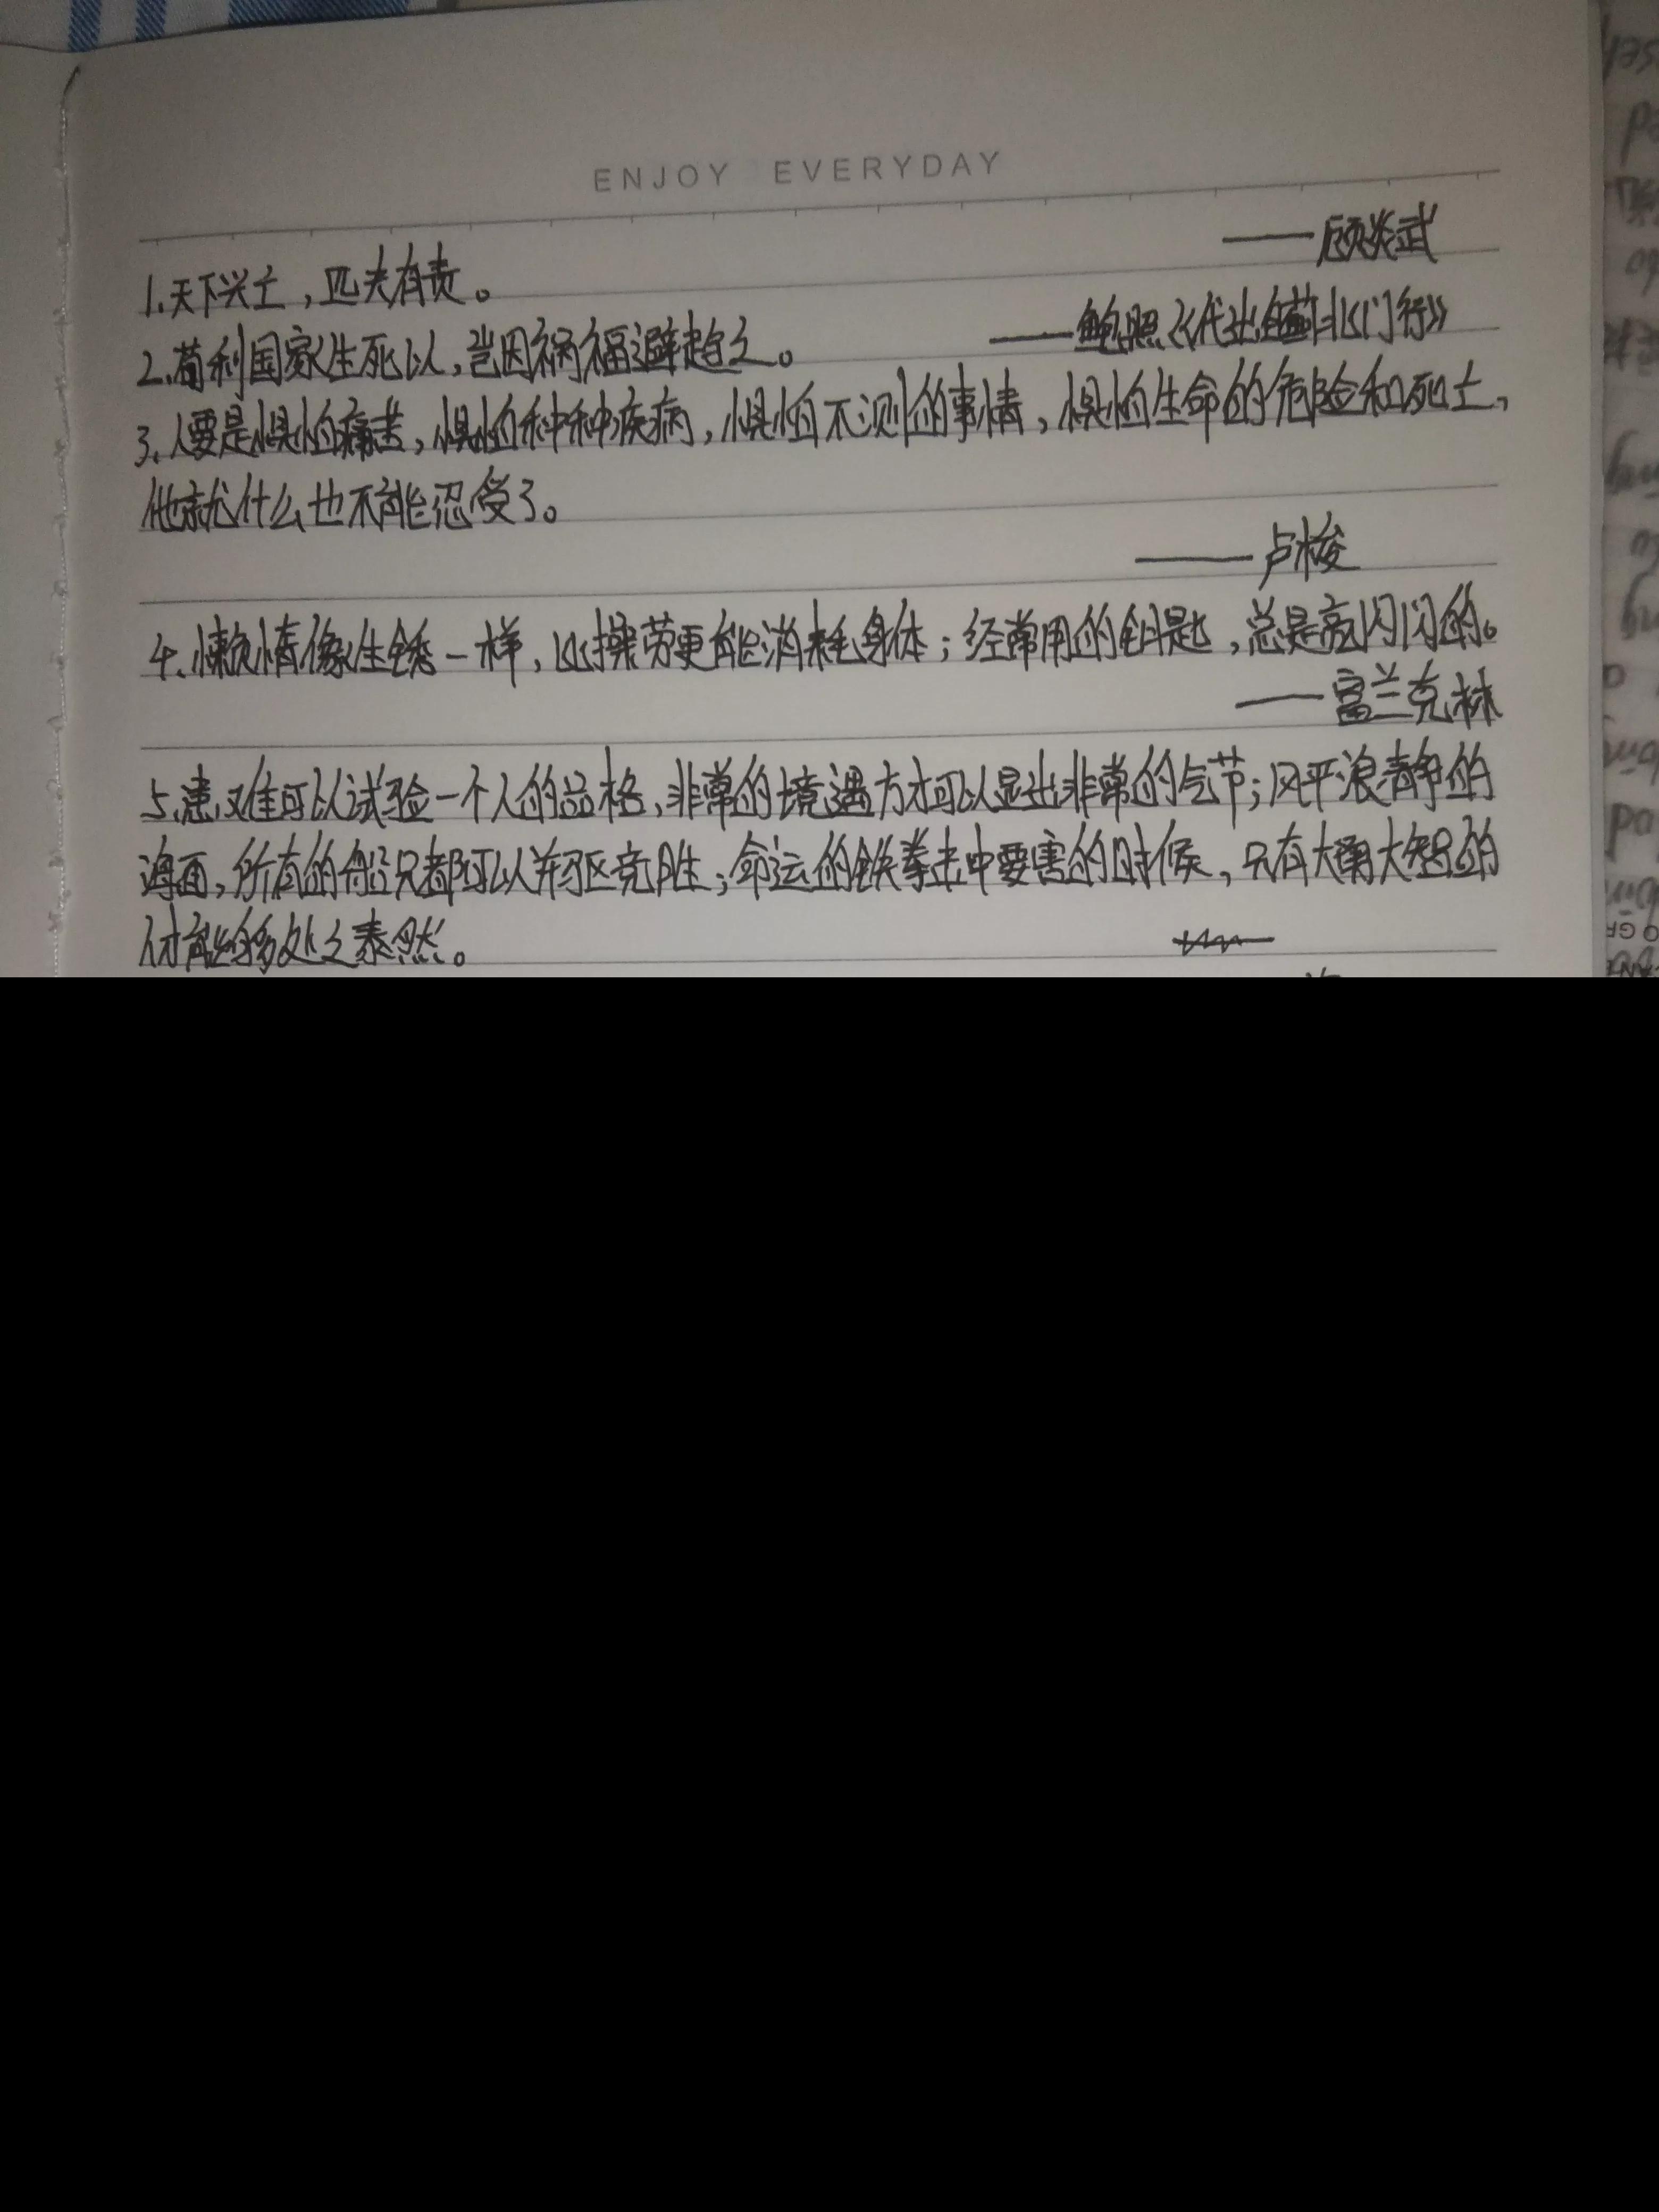 ENJOY EVERYDAY
1.天下兴亡，匹夫有责。 ——顾炎武
2.苟利国家生死以，岂因祸福避趋之。 ——鲍照《代出自蓟北门行》
3.人要是惧怕痛苦，惧怕种种疾病，惧怕不测的事情，惧怕生命的危险和死亡，
他就什么也不能忍受了。
——卢梭
4.懒惰像生锈一样，比操劳更能消耗身体；经常用的钥匙，总是亮闪闪的。
——富兰克林
5.患难可以试验一个人的品格，非常的境遇方才可以显出非常的气节；风平浪静的
海面，所有的船只都可以并驱竞胜；命运的铁拳击中要害的时候，只有大勇大智的
人才能够处之泰然。